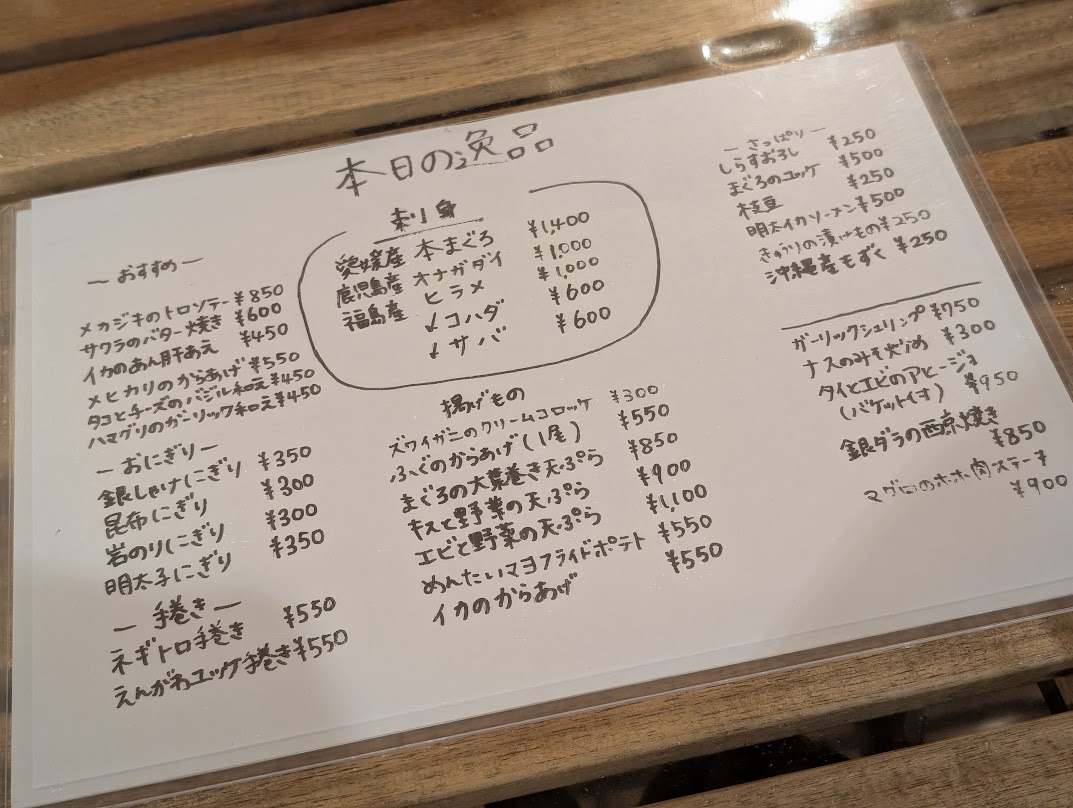 本日の逸品
刺身
愛媛産 本まぐろ ¥1,400
鹿児島産 オナガダイ ¥1,000
福島産 ヒラメ ¥1,000
↓ コハダ ¥600
↓ サバ ¥600
ーおすすめー
メカジキのトロソテー ¥850
サワラのバター焼き ¥600
イカのあん肝あえ ¥450
メヒカリのからあげ ¥550
タコとチーズのバジル和え ¥450
ハマグリのガーリック和え ¥450
ーおにぎりー
銀しゃけにぎり ¥350
昆布にぎり ¥300
岩のりにぎり ¥300
明太子にぎり ¥350
ー手巻きー
ネギトロ手巻き ¥550
えんがわユッケ手巻き ¥550
揚げもの
ズワイガニのクリームコロッケ ¥300
ふぐのからあげ(1尾) ¥550
まぐろの大葉巻き天ぷら ¥850
キスと野菜の天ぷら ¥900
エビと野菜の天ぷら ¥1,100
めんたいマヨフライドポテト ¥550
イカのからあげ ¥550
ーさっぱりー
しらすおろし ¥250
まぐろのユッケ ¥500
枝豆 ¥250
明太イカソーメン ¥500
きゅうりの漬けもの ¥250
沖縄産もずく ¥250
ガーリックシュリンプ ¥750
ナスのみそ炒め ¥300
タイとエビのアヒージョ
(バケット付) ¥950
銀ダラの西京焼き
¥850
マグロのホホ肉ステーキ
¥900